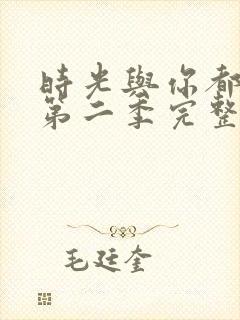 時光與你都
第二季完整
毛廷奎